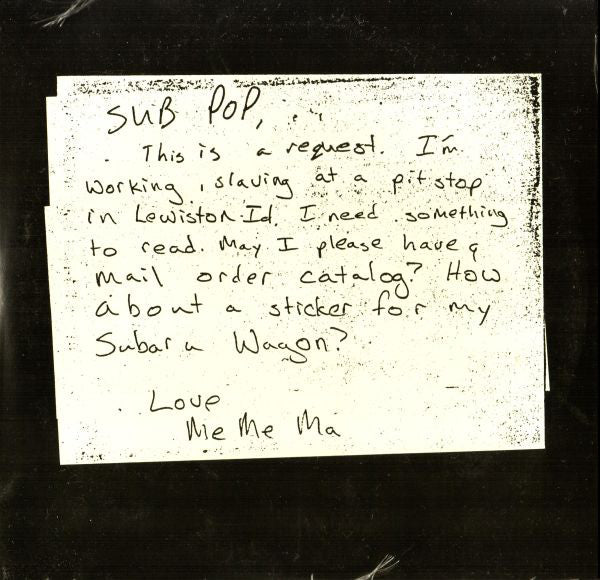 SUB POP,
This is a request. I'm
working, slaving at a pit stop
in Lewiston Id. I need something
to read. May I please have a
mail order catalog? How
about a sticker for my
Subaru Wagon?
Love
Me Me Ma